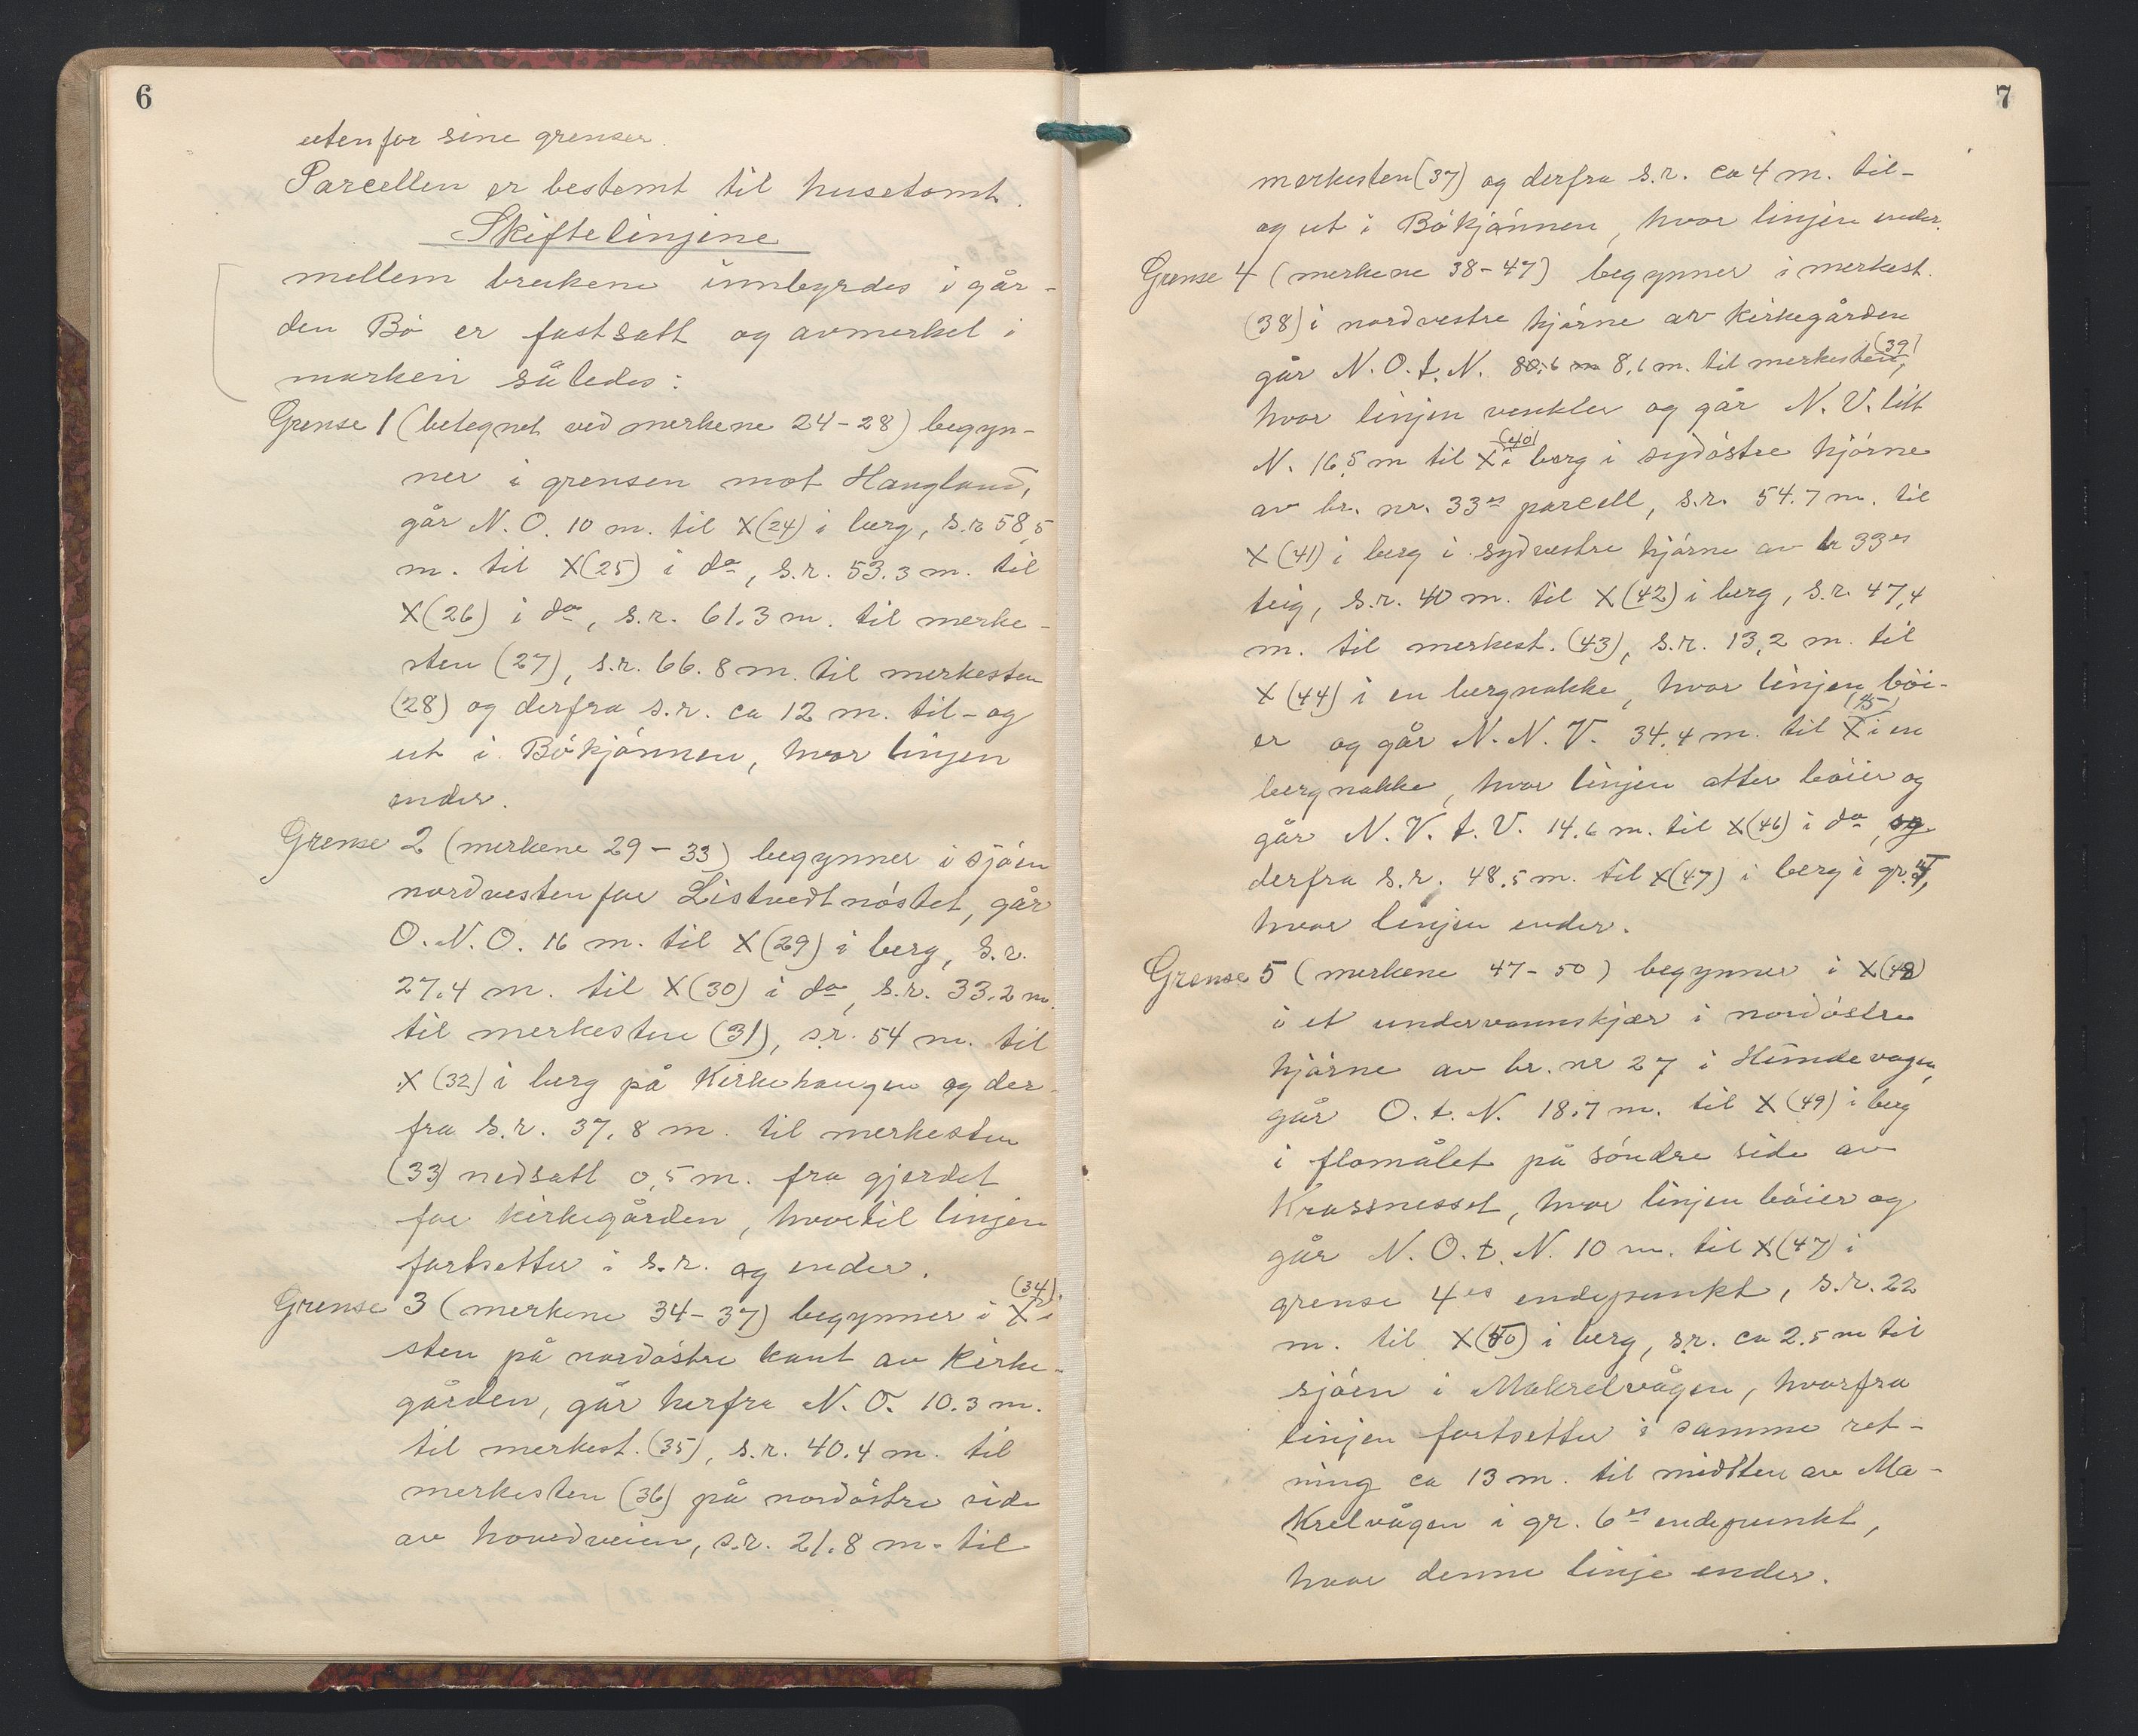 6
utenfor sine grenser.
Parcellen er bestemt til husetomt.
Skiftelinjene
mellem brukene innbyrdes i går-
den Bö er fastsatt og avmerket i
marken således:
Grense 1 (betegnet ved merkene 24-28) begyn-
ner i grensen mot Haugland,
går N.O. 10 m. til X(24) i berg, s.r 58,5
m. til X(25) i do, s.r. 53.3 m. til
X(26) i do, s.r. 61.3 m. til merke-
sten (27), s.r. 66.8 m. til merkesten
(28) og derfra s.r. ca 12 m. til- og
ut i Bökjönnen, hvor linjen
ender.
Grense 2 (merkene 29-33) begynner i sjöen
nordvestenfor Listvedtnöstet, går
O.N.O. 16 m. til X(29) i berg, s.r.
27.4 m. til X(30) i do, s.r. 33.2 m.
til merkesten (31), s.r. 54 m. til
X(32) i berg på Kirkehaugen og der-
fra s.r. 37,8 m. til merkesten
(33) nedsatt 0,5 m. fra gjerdet
for kirkegården, hvortil linjen
fortsetter i s.r. og ender.
Grense 3 (merkene 34-37) begynner i X (34) i
sten på nordöstre kant av kirke-
gården, går herfra N.O. 10.3 m.
til merkest. (35), s.r. 40.4 m. til
merkesten (36) på nordöstre side
av hovedveien, s.r. 21.8 m. til
7
merkesten (37) og derfra s.r. ca 4 m. til-
og ut i Bökjönnen, hvor linjen ender.
Grense 4 (merkene 38-47) begynner i merkest.
(38) i nordvestre hjörne av kirkegården
går N.O.t.N. 80.6 m 8.6 m. til merkesten (39),
hvor linjen vinkler og går N.V. litt
N. 16,5 m til X (40) i berg i sydöstre hjörne
av br. nr. 33es parcell, s.r. 54.7 m. til
X(41) i berg i sydvestre hjörne av br 33es
teig, s.r. 40 m. til X(42) i berg, s.r. 47,4
m. til merkest. (43), s.r. 13,2 m. til
X(44) i en bergnakke, hvor linjen böi-
er og går N.N.V. 34.4 m. til X (45) i en
bergnakke, hvor linjen atter böier og
går N.V.t.V. 14.6 m. til X(46) i do, og
derfra s.r. 48.5 m. til X(47) i berg i gr. 5,
hvor linjen ender.
Grense 5 (merkene 47-50) begynner i X(48)
i et undervannskjær i nordöstre
hjörne av br. nr 27 i Hundevagen,
går O.t.N. 18.7 m. til X(49) i berg
i flomålet på söndre side av
Krossnesset, hvor linjen böier og
går N.O.t.N. 10 m. til X(47) i
grense 4es endepunkt, s.r. 22
m. til X(50) i berg, s.r. ca 2.5 m til
sjöen i Makrelvågen, hvorfra
linjen fortsetter i samme ret-
ning ca 13 m. til midtten av Ma-
krelvågen i gr. 6es endepunkt,
hvor denne linje ender.